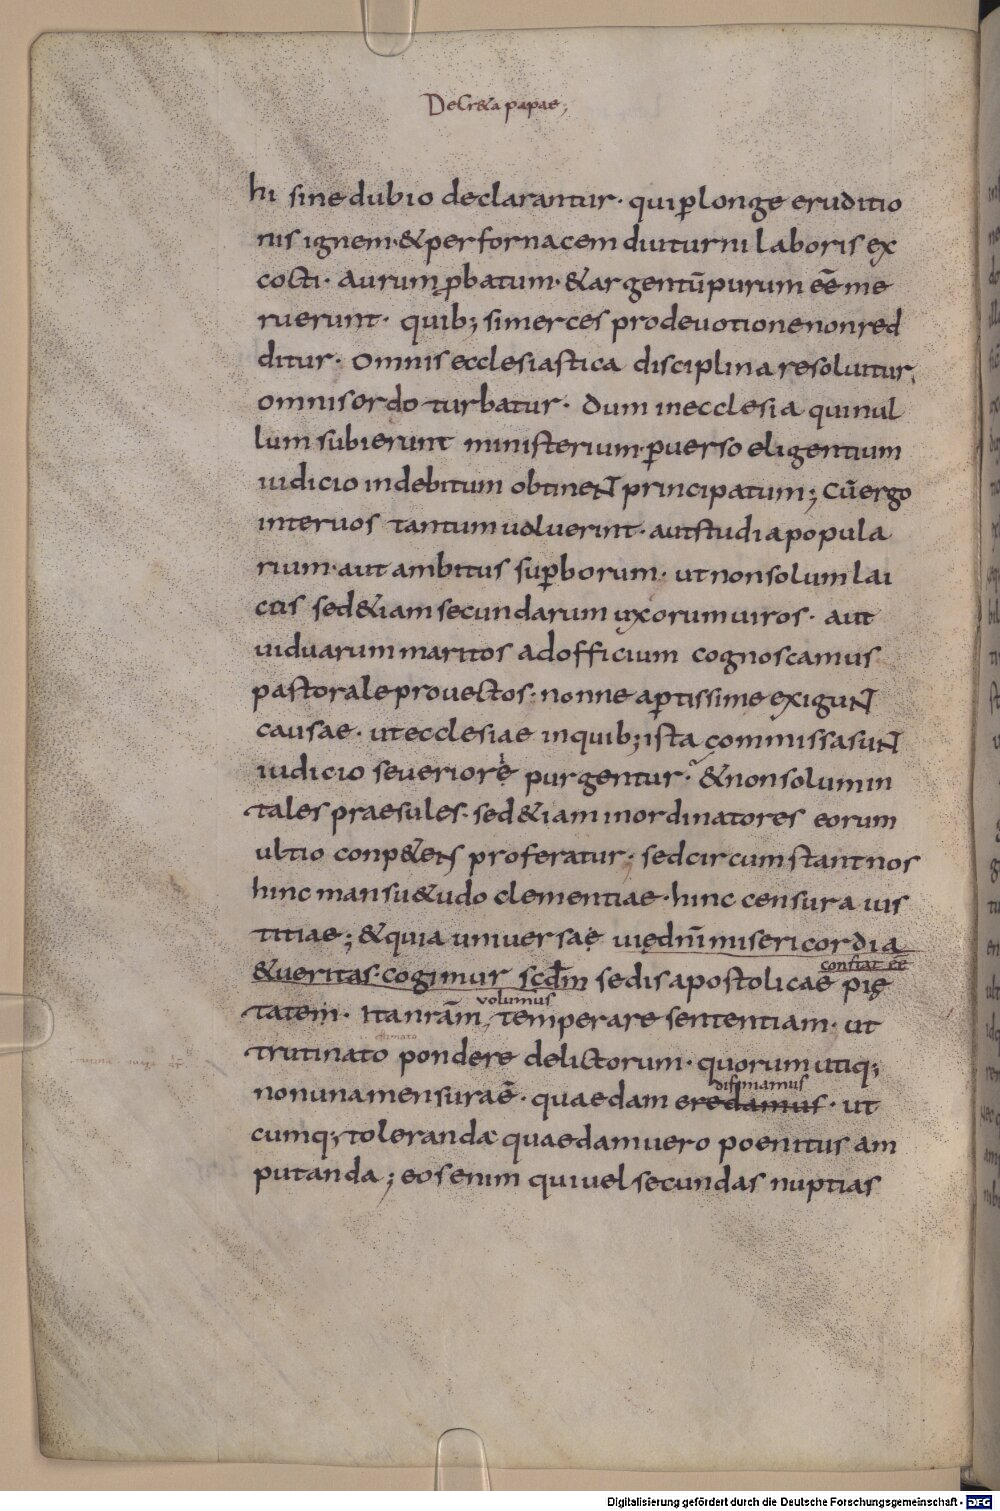 Decr&a papae;
hi sine dubio declarantur· qui ꝑlonge eruditio
nis ignem·& per fornacem diuturni laboris ex
cocti· aurum ꝓbatum· & argentū purum eē me
ruerunt· quib; si merces pro deuotione non red
ditur· Omnis ecclesiastica disciplina resoluitur,
omnis ordo turbatur· dum in ecclesia qui nul
lum subierunt ministerium· ꝑuerso eligentium
iudicio indebitum obtinent principatum; Cū ergo
inter uos tantum uoluerint· aut studia popula
rium· aut ambitus suꝑborum· ut non solum lai
cus sed &iam secundarum uxorum uiros· aut
uiduarum maritos ad officium cognoscamus
pastorale prouectos· nonne aꝑtissime exigunt
causae· ut ecclesiae in quib; ista commissa sunt
iudicio seueriore purgentur· & non solum in
tales praesules· sed &iam in ordinatores eorum
ultio conp&ens proferatur; sed circumstant nos
hinc mansu&udo clementiae· hinc censura ius
titiae; & quia uniuersae uię dnī misericordia
constat eē
& ueritas· cogimur scdm sedis apostolicae pię
uolumus
tatem· Ita nrām temperare sententiam· ut
trutinato pondere delictorum· quorum utiq;
non una mensura ē· quaedam credamus· ut
cumq; toleranda· quaedam uero poenitus am
putanda; eos enim qui uel secundas nuptias
Digitalisierung gefördert durch die Deutsche Forschungsgemeinschaft - DFG